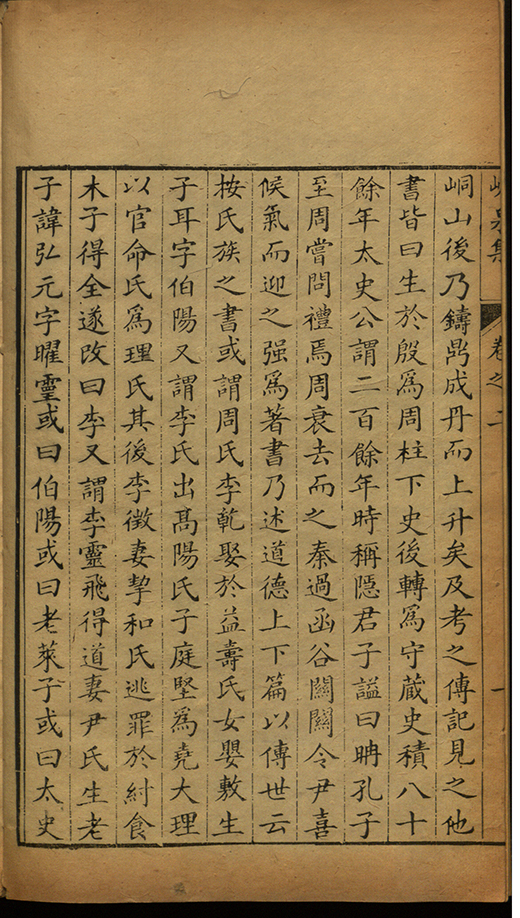 峴泉集 卷之二 一
峒山後乃鑄鼎成丹而上升矣及考之傳記見之他
書皆曰生於殷爲周柱下史後轉爲守蔵史積八十
餘年太史公謂二百餘年時稱隠君子謚曰聃孔子
至周嘗問禮焉周衰去而之秦過函谷關關令尹喜
候氣而迎之强爲著書乃述道德上下篇以傳世云
按氏族之書或謂周氏李乾娶於益壽氏女嬰敷生
子耳字伯陽又謂李氏出髙陽氏子庭堅爲堯大理
以官命氏爲理氏其後李徴妻挈和氏逃罪於紂食
木子得全遂改曰李又謂李靈飛得道妻尹氏生老
子諱弘元字曜靈或曰伯陽或曰老萊子或曰太史